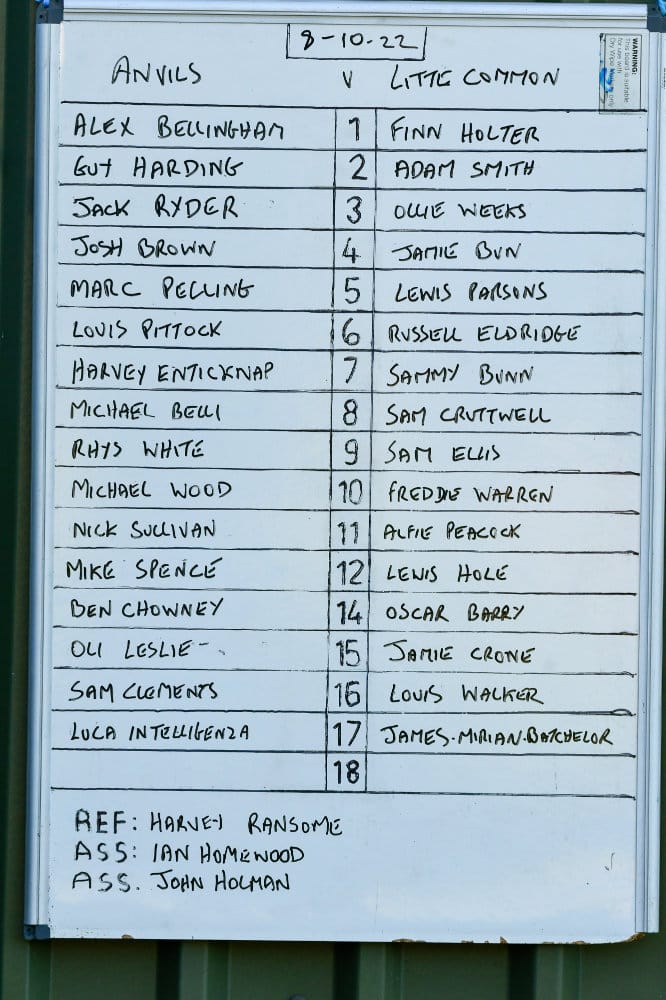 8-10-22
WARNING:
This board is suitable
for use with
ANVILS V LITTE COMMON
ALEX BELLINGHAM 1 FINN HOLTER
GUY HARDING 2 ADAM SMITH
JACK RYDER 3 OLLIE WEEKS
JOSH BROWN 4 JAMIE BUN
MARC PELLING 5 LEWIS PARSONS
LOUIS PITTOCK 6 RUSSELL ELDRIDGE
HARVEY ENTICKNAP 7 SAMMY BUNN
MICHAEL BELLI 8 SAM CRUTTWELL
RHYS WHITE 9 SAM ELLIS
MICHAEL WOOD 10 FREDDIE WARREN
NICK SULLIVAN 11 ALFIE PEACOCK
MIKE SPENCE 12 LEWIS HOLE
BEN CHOWNEY 14 OSCAR BARRY
OLI LESLIE - 15 JAMIE CRONE
SAM CLEMENTS 16 LOUIS WALKER
LUCA INTELLIGENZA 17 JAMES-MIRIAN-BATCHELOR
18
REF: HARVEY RANSOME
ASS: IAN HOMEWOOD
ASS. JOHN HOLMAN